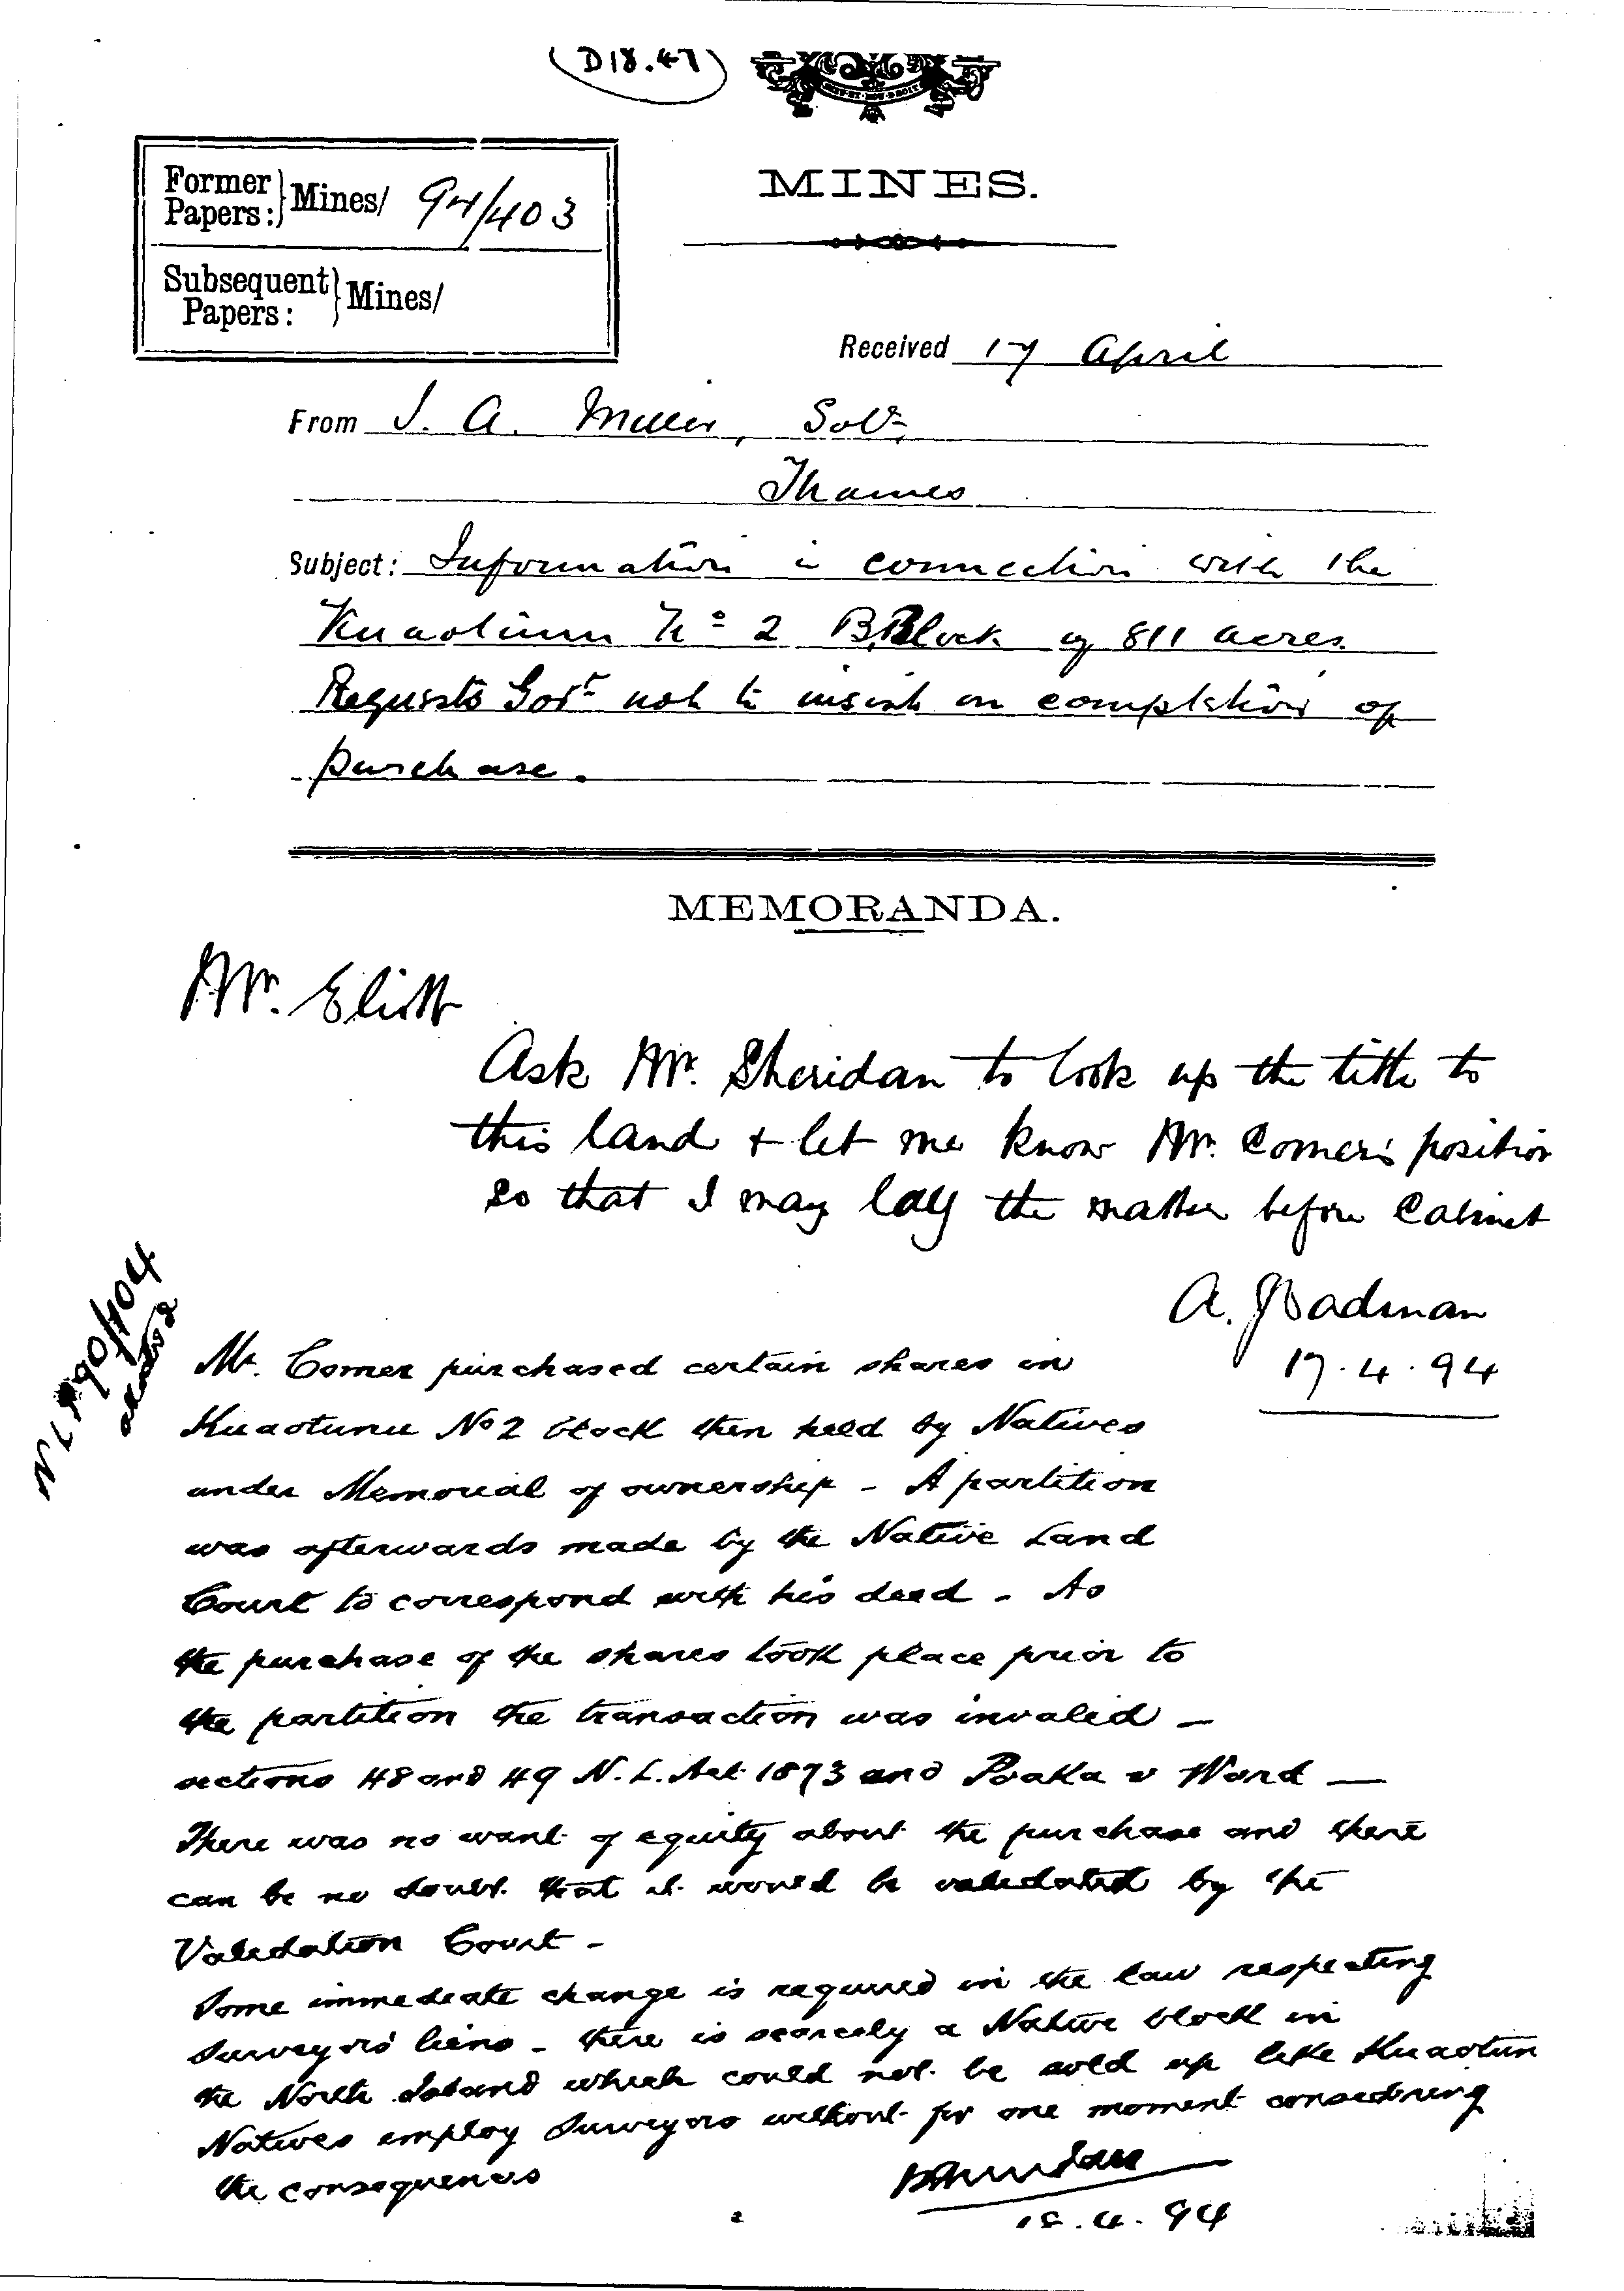 (D18.47)
MINES.
Former Papers: } Mines/ 94/403
Subsequent Papers: } Mines/
Received 17 April
From J. A. Miller, Solr,
Thames
Subject: Information in connection with the
Kuaotunu No 2 B Block of 811 acres.
Requests Govt not to insist on completion of
purchase.
MEMORANDA.
Mr. Eliott
Ask Mr. Sheridan to look up the title to
this land & let me know Mr. Comer's position
so that I may lay the matter before Cabinet
A. J. Cadman
17.4.94
90/404
Mr. Comer purchased certain shares in
Kuaotunu No 2 block then held by Natives
under Memorial of ownership - A partition
was afterwards made by the Native Land
Court to correspond with his deed - As
the purchase of the shares took place prior to
the partition the transaction was invalid -
sections 48 and 49 N. L. Act 1873 and Poaka v Ward -
There was no want of equity about the purchase and there
can be no doubt that it would be validated by the
Validation Court -
Some immediate change is required in the law respecting
Surveyors' liens - there is scarcely a Native block in
the North Island which could not be sold up like Kuaotun
Natives employ Surveyors without for one moment considering
the consequences
P Sheridan
18.4.94